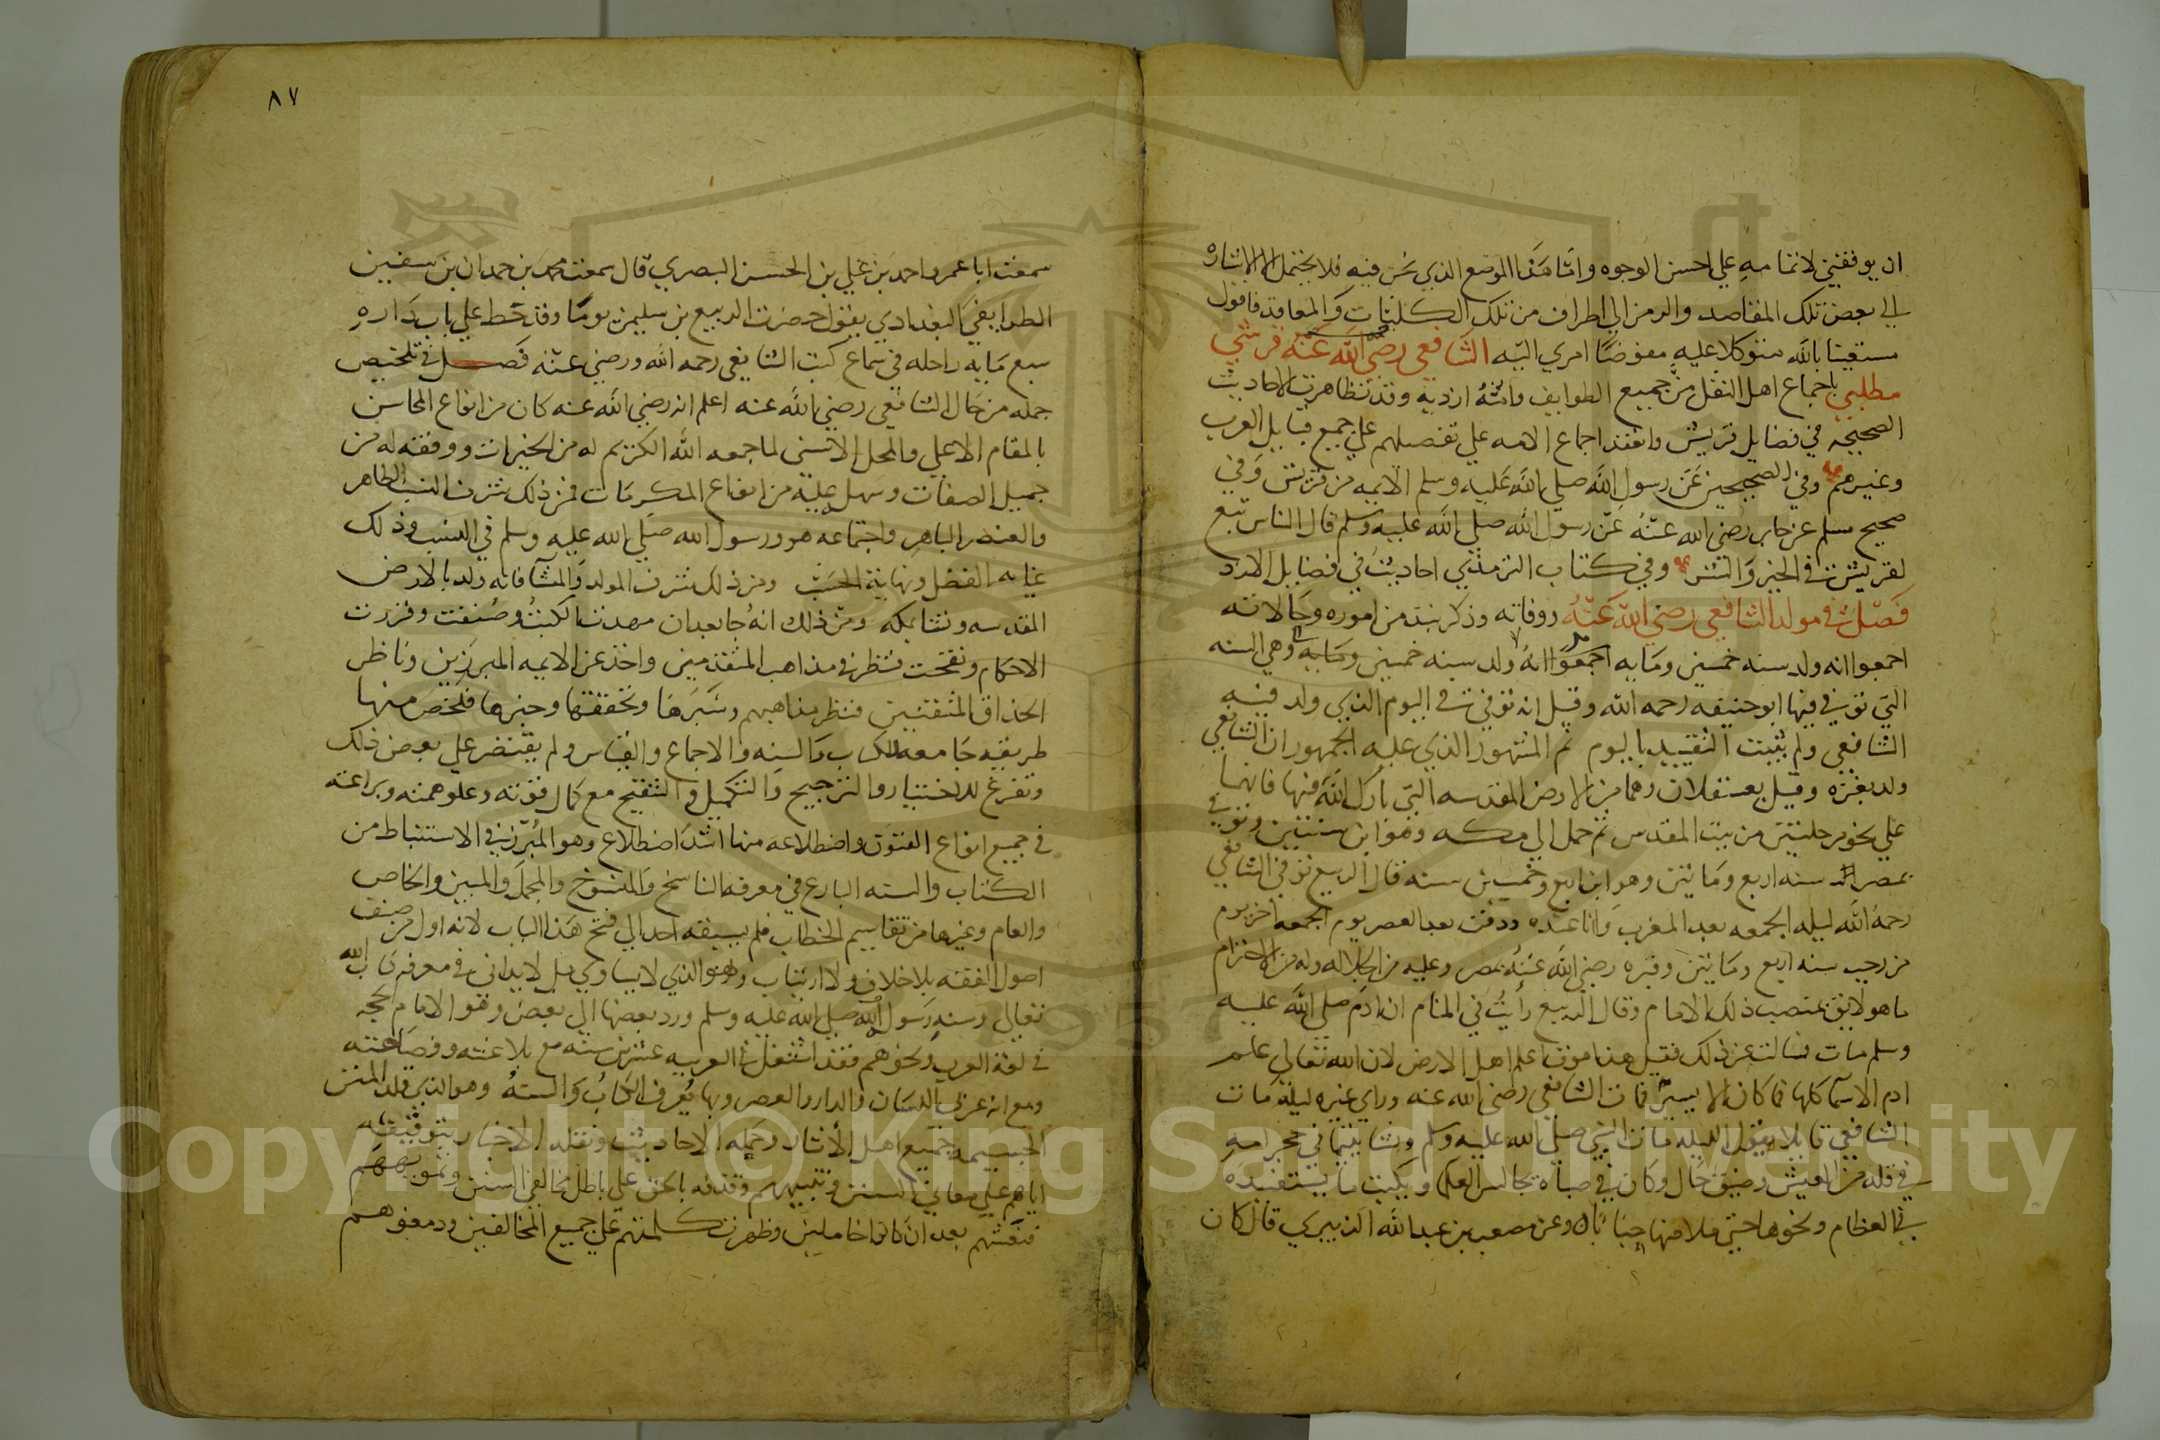 ان يوفقني لاتمامه علي احسن الوجوه واما هذا الموضع الذي نحن فيه فلا يحتمل الا الاشاره
الي بعض تلك المقاصد والرمز الي اطراف من تلك الكليات والمعاقد فاقول
مستعينا بالله متوكلا عليه مفوضا امري اليه الشافعي رضي الله عنه قرشي
مطلبي باجماع اهل النقل من جميع الطوايف وامه ازديه وقد تظاهرت الاحاديث
الصحيحه في فضايل قريش وانعقد اجماع الامه علي تفضيلهم علي جميع قبايل العرب
وغيرهم وفي الصحيحين عن رسول الله صلي الله عليه وسلم الايمه من قريش وفي
صحيح مسلم عن جابر رضي الله عنه عن رسول الله صلي الله عليه وسلم قال الناس تبع
لقريش في الخير والشر وفي كتاب الترمذي احاديث في فضايل الازد
فصل في مولد الشافعي رضي الله عنه ووفاته وذكر نبذ من اموره وحالاته
اجمعوا انه ولد سنه خمسين ومايه اجمعوا انه ولد سنه خمسين ومايه وهي السنه
التي توفي فيها ابو حنيفه رحمه الله وقيل انه توفي في اليوم الذي ولد فيه
الشافعي ولم يثبت التقييد باليوم ثم المشهور الذي عليه الجمهور ان الشافعي
ولد بغزه وقيل بعسقلان وهما من الارض المقدسه التي بارك الله فيها فانهما
علي نحو مرحلتين من بيت المقدس ثم حمل الي مكه وهو ابن سنتين وتوفي
بمصر سنه اربع ومائتين وهو ابن اربع وخمسين سنه قال الربيع توفي الشافعي
رحمه الله ليله الجمعه بعد المغرب وانا عنده ودفن بعد العصر يوم الجمعه اخر يوم
من رجب سنه اربع ومائتين وقبره رضي الله عنه بمصر وعليه من الجلاله وله من الاحترام
ما هو لايق بمنصب ذلك الامام وقال الربيع رأيت في المنام ان ادم صلي الله عليه
وسلم مات فسالت عن ذلك فقيل هذا موت اعلم اهل الارض لان الله تعالي علم
ادم الاسما كلها فما كان الا يسير فمات الشافعي رضي الله عنه وراي غيره ليله مات
الشافعي قايلا يقول الليله مات النبي صلي الله عليه وسلم ونشا يتيما في حجر امه
في قله من العيش وضيق حال وكان في صباه يجالس العلما ويكتب ما يستفيده
في العظام ونحوها حتي ملا منها خبايا وعن مصعب بن عبد الله الزبيري قال كان
٨٧
سمعت ابا عمرو احمد بن علي بن الحسن البصري قال سمعت محمد بن حمدان بن سفين
الطرايفي البغدادي يقول حضرت الربيع بن سليمن يوما وقد حط علي باب داره
سبع مايه راحله في سماع كتب الشافعي رحمه الله ورضي عنه فصل في تلخيص
جمله من حال الشافعي رضي الله عنه اعلم انه رضي الله عنه كان من انواع المحاسن
بالمقام الاعلي والمحل الاسنى لما جمعه الله الكريم له من الخيرات ووفقه له من
جميل الصفات وسهل عليه من انواع المكرمات فمن ذلك شرف النسب الطاهر
والعنصر الباهر واجتماعه هو ورسول الله صلي الله عليه وسلم في النسب وذلك
غايه الفضل ونهاية الحسب ومن ذلك شرف المولد والمنشا فانه ولد بالارض
المقدسه ونشا بمكه ومن ذلك انه جا بعد ان مهدت الكتب وصنفت وقررت
الاحكام ونقحت فنظر في مذاهب المتقدمين واخذ عن الايمه المبرزين وناظر
الحذاق المتقنين فنظر مذاهبهم وسبرها وتحققها وخبرها فلخص منها
طريقه جامعه للكتاب والسنه والاجماع والقياس ولم يقتصر علي بعض ذلك
وتفرغ للاختيار والترجيح والتكميل والتنقيح مع كمال قوته وعلو همته وبراعته
في جميع انواع الفنون واضطلاعه منها اشد اضطلاع وهو المبرز في الاستنباط من
الكتاب والسنه البارع في معرفه الناسخ والمنسوخ والمجمل والمبين والخاص
والعام وغيرها من تقاسيم الخطاب فلم يسبقه احد الي فتح هذا الباب لانه اول من صنف
اصول الفقه بلا خلاف ولا ارتياب وهو الذي لا يساوي بل لا يداني في معرفة كتاب الله
تعالي وسنه رسول الله صلي الله عليه وسلم ورد بعضها الي بعض وهو الامام الحجه
في لغه العرب ونحوهم فقد اشتغل في العربيه عشرين سنه مع بلاغته وفصاحته
ومع انه عربي اللسان والدار والعصر وبها يعرف الكتاب والسنه وهو الذي قلد المنن
الجسيمه جميع اهل الاثار وحمله الاحاديث ونقله الاخبار بتوقيفه
اياهم علي معاني السنن وتنبيههم وقذفه بالحق علي باطل مخالفي السنن وتمويههم
فنعشهم بعد ان كانوا خاملين وظهرت كلمتهم علي جميع المخالفين ودمغوهم
Copyright © King Saud University
1957